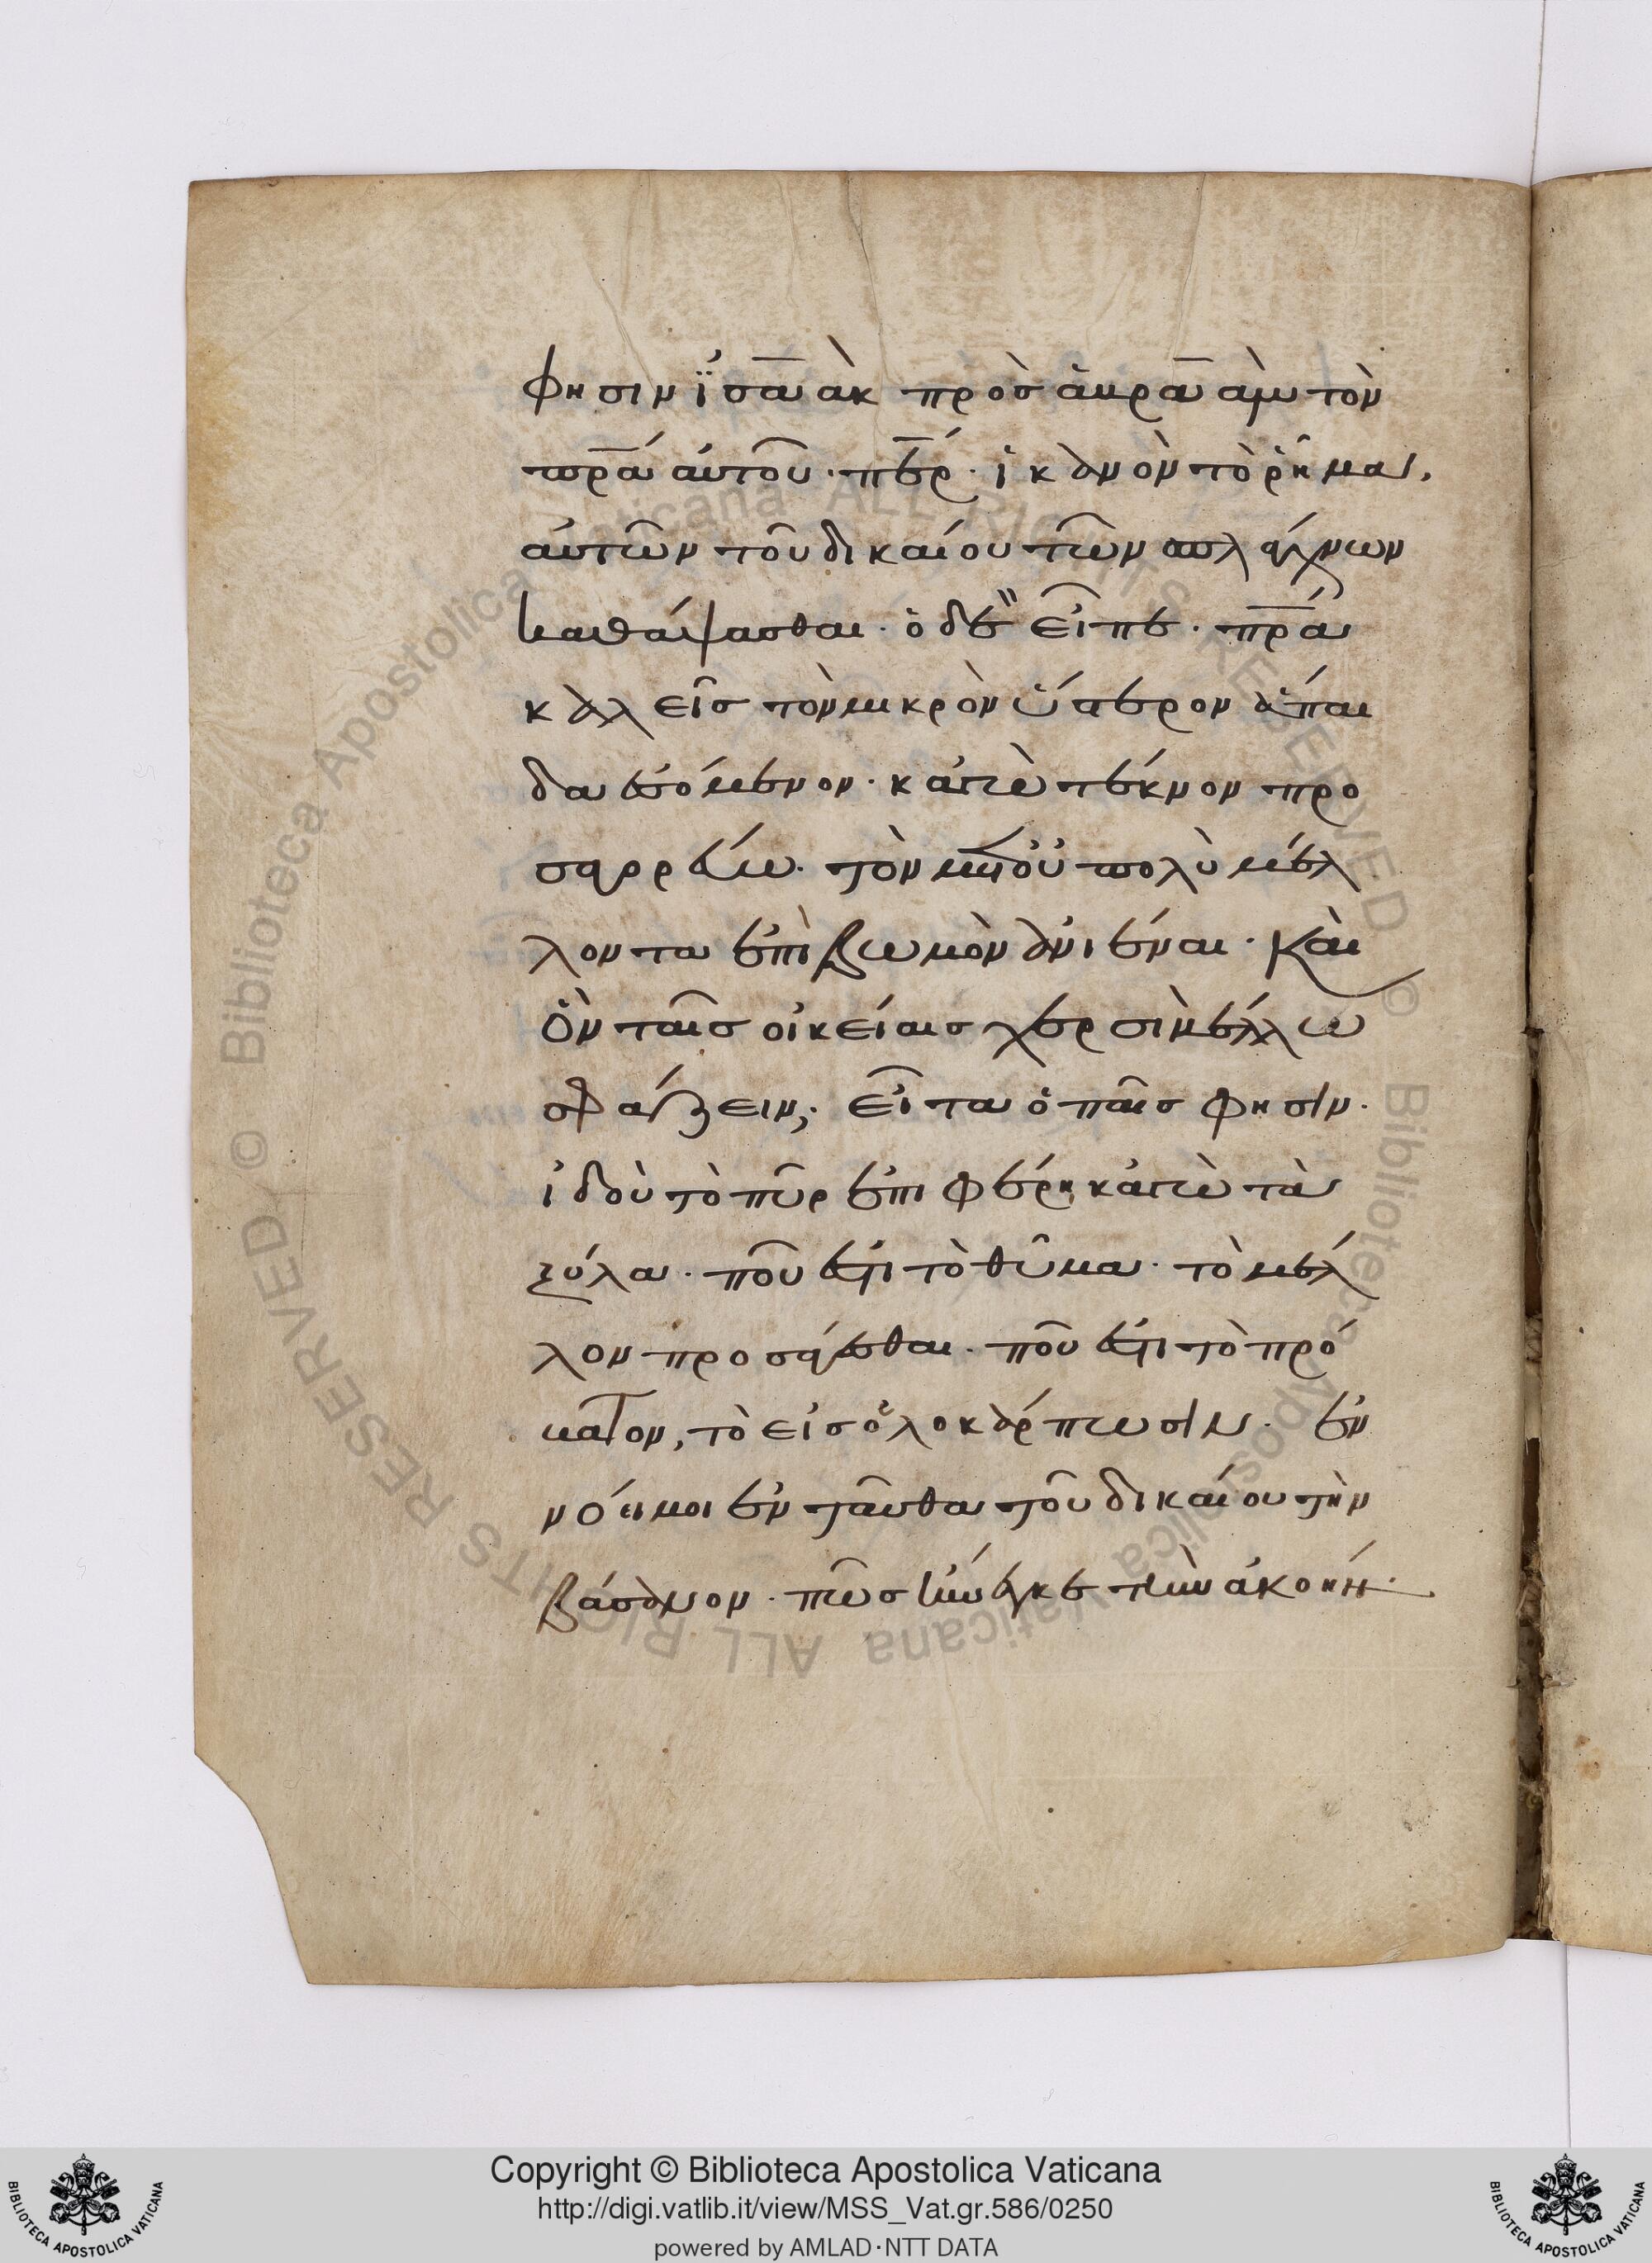 φησιν ϊσαὰκ πρὸσ ἀβραὰμ τὸν
πρ̅α αὐτοῦ· πε̅ρ· ἱκανὸν τὸ ῥῆμα,
αὐτῶν τοῦ δικαίου τῶν σπλάγχνων
καθάψασθαι· ὁ δὲ εἶπε· πρ̅α
καλεῖσ τὸν μικρὸν ὕστερον ἄπαι
δα ἐσόμενον· κἀγὼ τέκνον προ
σαγορεύω· τὸν μετ οὐ πολὺ μέλ
λοντα ἐπὶ βωμὸν ἀνιέναι· καὶ
ὃν ταῖσ οἰκείαισ χερσὶ μέλλω
σφάζειν; εἶτα ὁ παῖσ φησίν·
ἰδοὺ τὸ πῦρ ἐπιφέρη κἀγὼ τὰ
ξύλα· ποῦ ἐστι τὸ θῦμα· τὸ μέλ
λον προσάγεσθαι· ποῦ ἐστι τὸ πρό
βατον, τὸ εἰσ ὁλοκάρπωσιν· ἐν
νόει μοι ἐνταῦθα τοῦ δικαίου τὴν
βάσανον· πῶσ ἤνεγκε τὴν ἀκοήν·
Copyright © Biblioteca Apostolica Vaticana
http://digi.vatlib.it/view/MSS_Vat.gr.586/0250
powered by AMLAD·NTT DATA
BIBLIOTECA APOSTOLICA VATICANA
BIBLIOTECA APOSTOLICA VATICANA
© Biblioteca Apostolica Vaticana ALL RIGHTS RESERVED
© Biblioteca Apostolica Vaticana ALL RIGHTS RESERVED